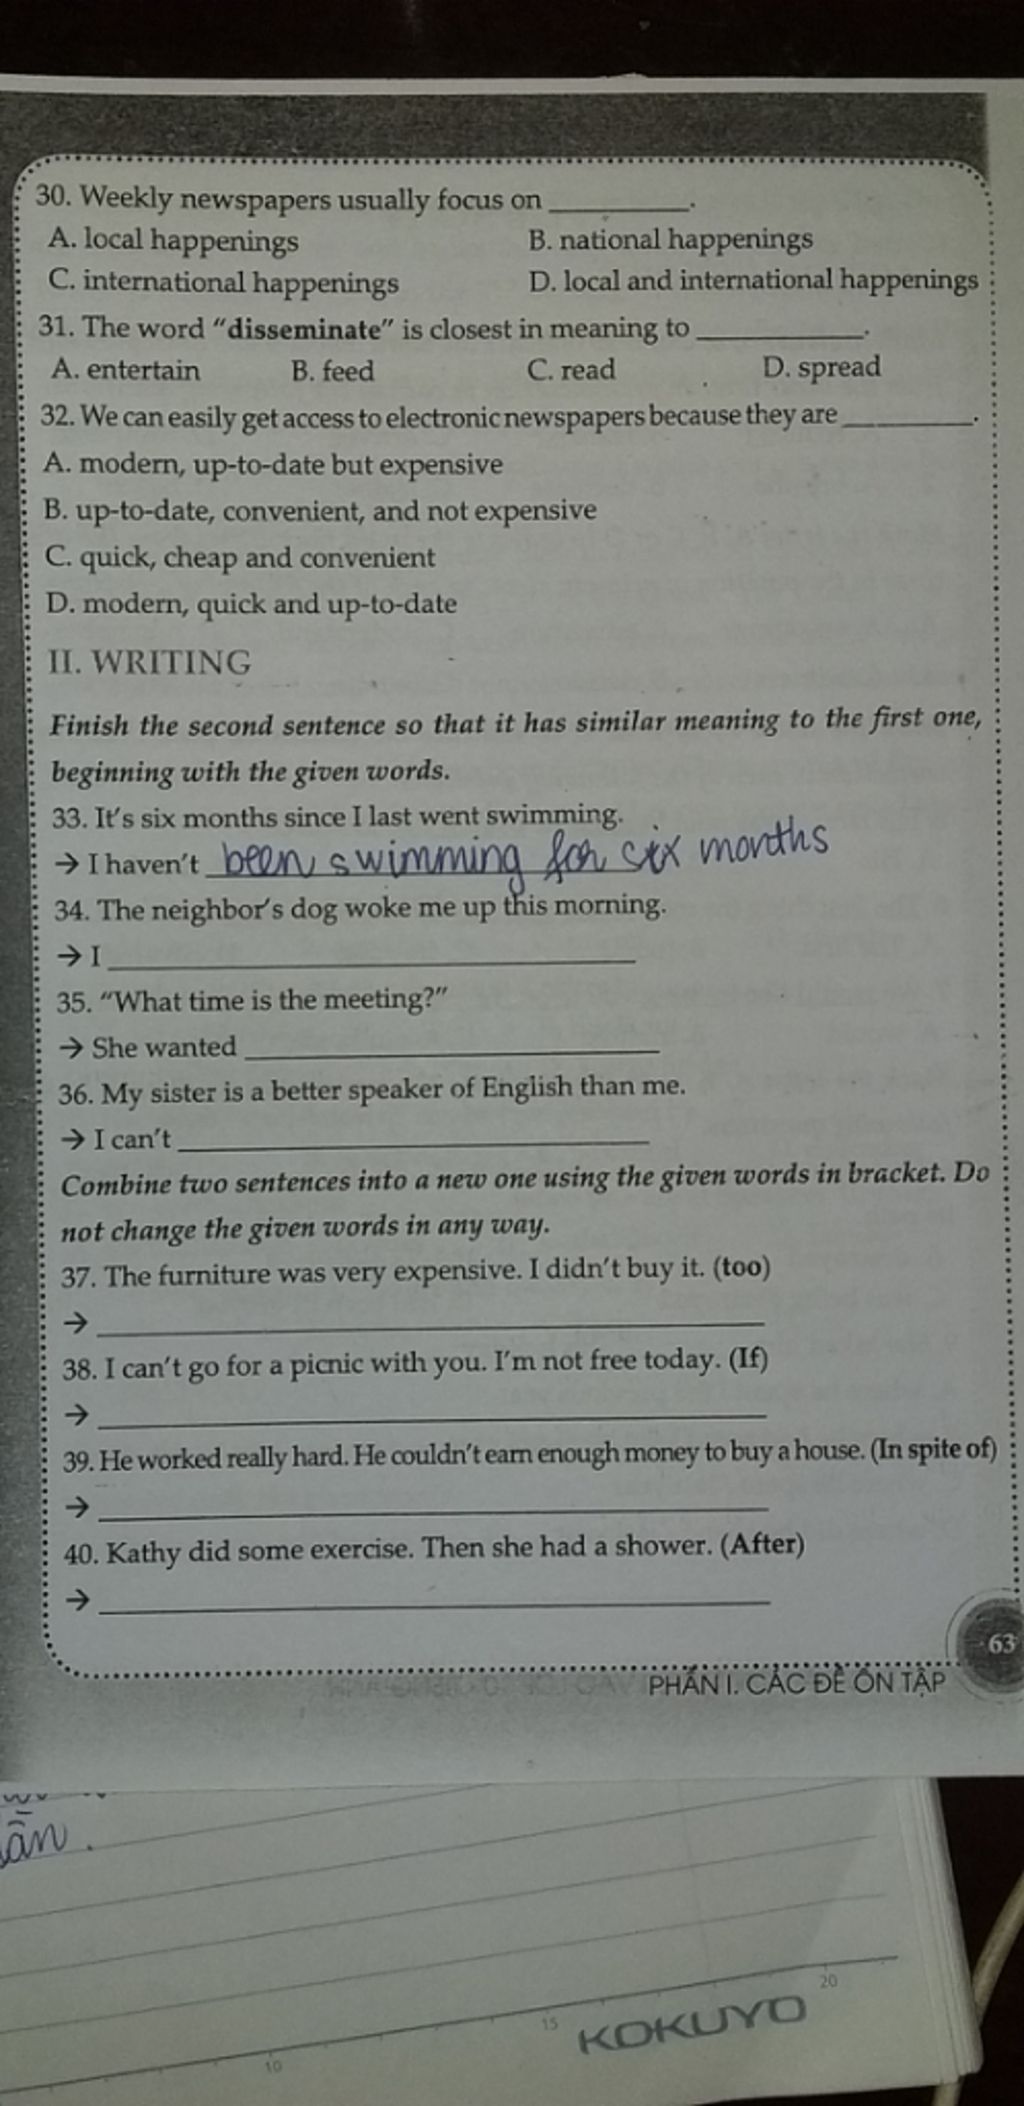 30. Weekly newspapers usually focus on ________.
A. local happenings B. national happenings
C. international happenings D. local and international happenings
31. The word “disseminate” is closest in meaning to ________.
A. entertain B. feed C. read D. spread
32. We can easily get access to electronic newspapers because they are ________.
A. modern, up-to-date but expensive
B. up-to-date, convenient, and not expensive
C. quick, cheap and convenient
D. modern, quick and up-to-date
II. WRITING
Finish the second sentence so that it has similar meaning to the first one,
beginning with the given words.
33. It's six months since I last went swimming.
→ I haven't been swimming for six months
34. The neighbor's dog woke me up this morning.
→ I ________
35. “What time is the meeting?”
→ She wanted ________
36. My sister is a better speaker of English than me.
→ I can't ________
Combine two sentences into a new one using the given words in bracket. Do
not change the given words in any way.
37. The furniture was very expensive. I didn't buy it. (too)
→ ________
38. I can't go for a picnic with you. I'm not free today. (If)
→ ________
39. He worked really hard. He couldn't earn enough money to buy a house. (In spite of)
→ ________
40. Kathy did some exercise. Then she had a shower. (After)
→ ________
63
PHẦN I. CÁC ĐỀ ÔN TẬP
10 15 20
KOKUYO